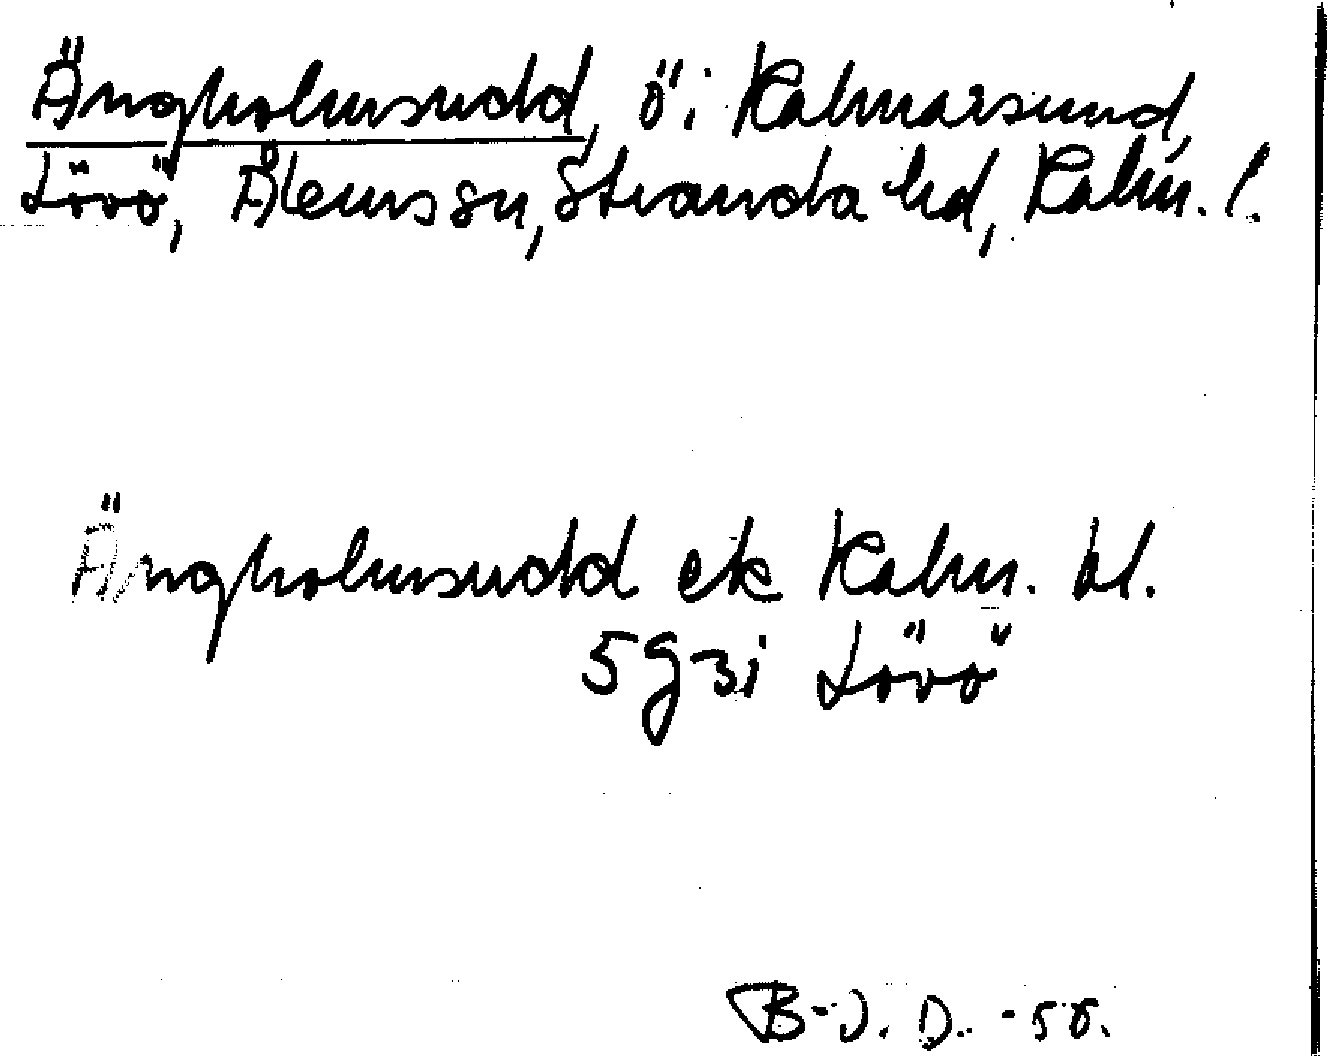 Ängholmsudd, ö i Kalmarsund,
Lövö, Ålems sn, Stranda hd, Kalm. l.
Ängholmsudd ek Kalm. bl.
5g3i Lövö
B-J. D. -56.